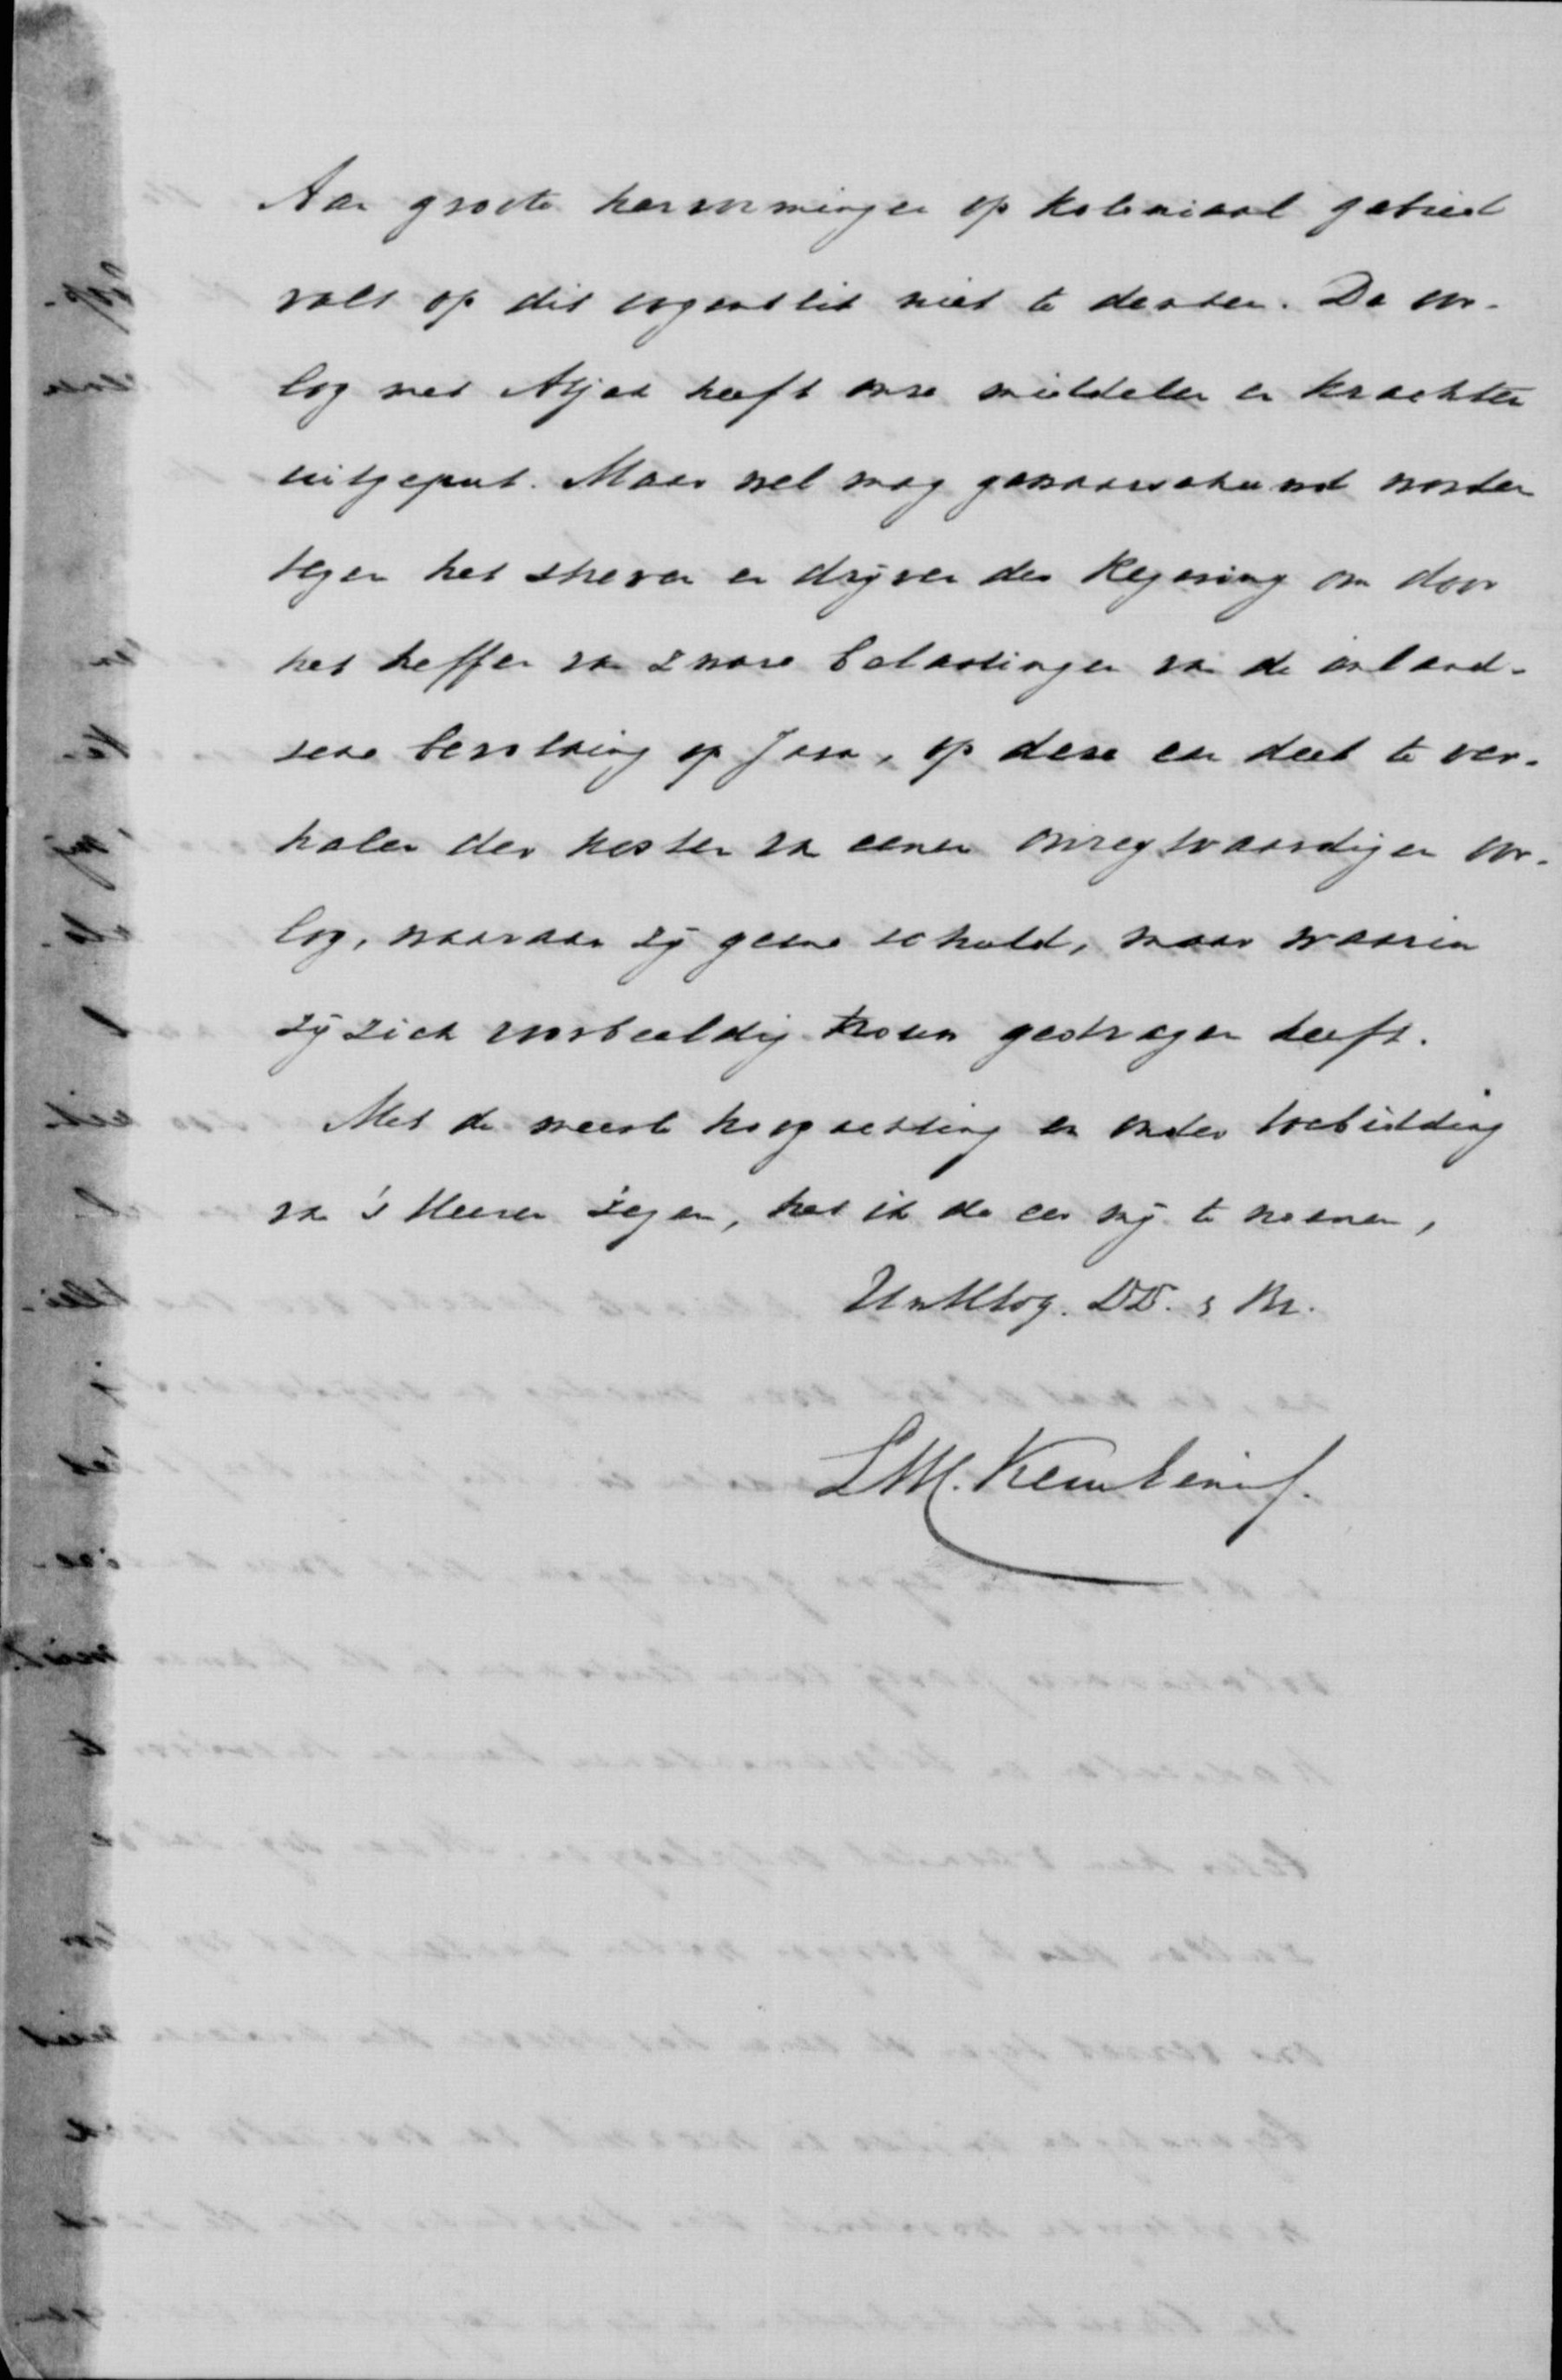 Aan groote hervormingen op koloniaal gebied
valt op dit oogenblik niet te denken. De oor-
log met Atjeh heeft onze middelen en krachten
uitgeput. Maar wel mag gewaarschuwd worden
tegen het streven en drijven der Regering om door
het heffen van zware belastingen van de inland-
sche bevolking op Java, op deze een deel te ver-
halen der kosten van eenen onregtvaardigen oor-
log, waaraan zij geene schuld, maar waarin
zij zich voorbeeldig trouw gedragen heeft.
Met de meeste hoogachting en onder toebidding
van 's Heeren zegen, heb ik de eer mij te noemen,
UwHoog. DD. & Br.
L.W.C. Keuchenius.